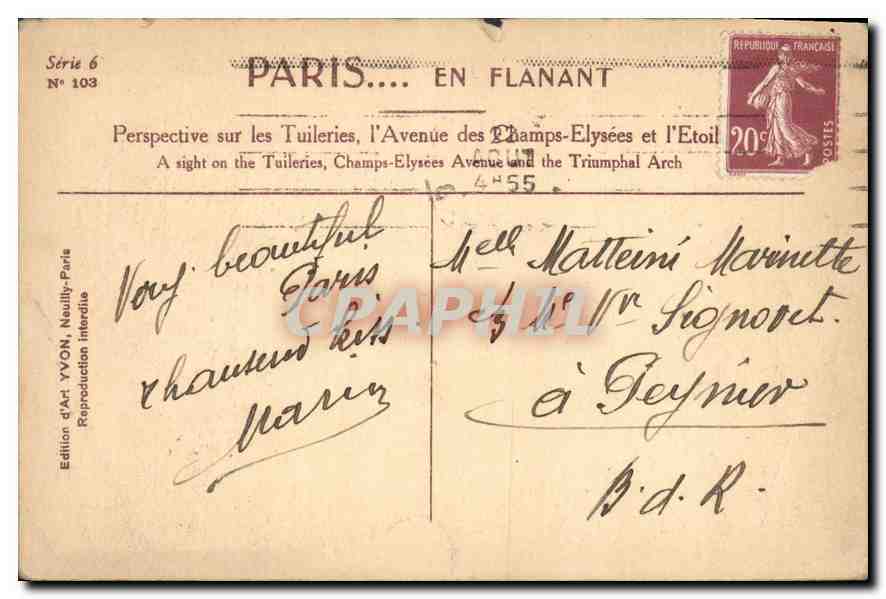 Série 6
Nº 103
PARIS.... EN FLANANT
Perspective sur les Tuileries, l'Avenue des Champs-Elysées et l'Etoil
A sight on the Tuileries, Champs-Elysées Avenue and the Triumphal Arch
RÉPUBLIQUE FRANÇAISE
20c
POSTES
22
AOUT
4H55
Edition d'Art YVON, Neuilly-Paris
Reproduction interdite
Very beautiful
Paris
thousend kiss
Marin
Melle Matteini Marinette
Vr Signoret.
à Peynier
B.d.R.
CPAPHIL